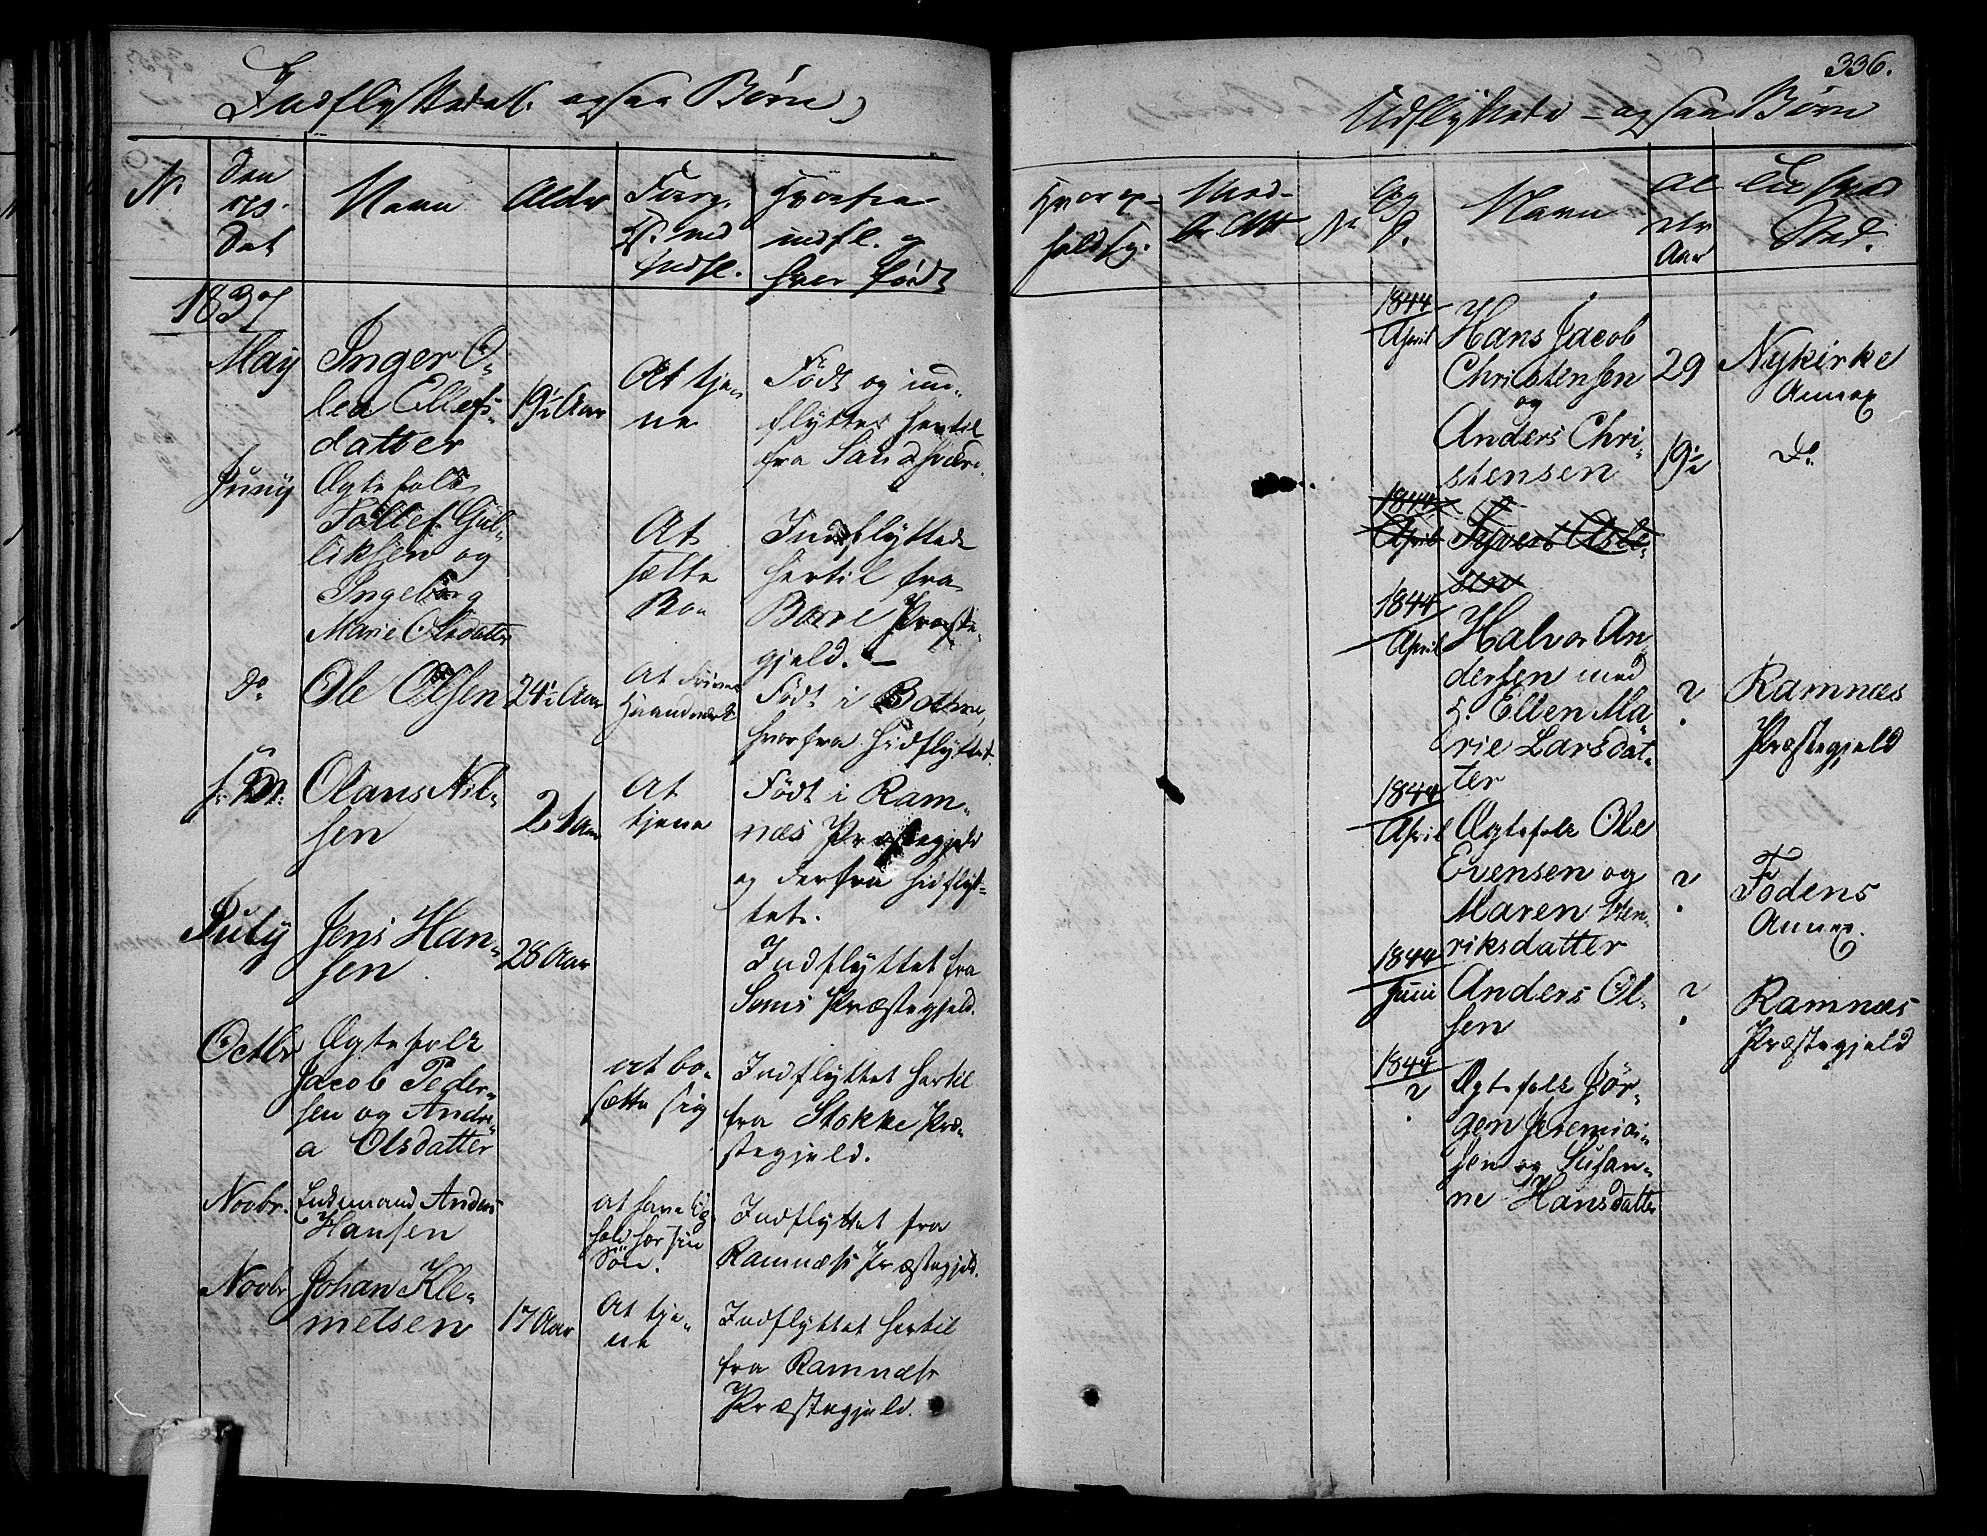 Indflyttede ogsaa Børn
No
Den
Det
Navn
Alder
Indfl.
Hvorfra
indfl. og
hvor født
1837
May
Inger O-
lea Ellefs-
datter
19½ Aar
At tje-
ne
Født og ind-
flyttet hertil
fra Sandsværd.
Juny
Ægtefolk
Tollef Gul-
liksen og
Ingeborg
Marie Olsdatter
At
sætte
Bo
Indflyttede
hertil fra
Borre Præste-
gjeld. -
Do
Ole Olsen
24½ Aar
At drive
Haandværk
Født i Bothne,
hvorfra hidflyttet.
Olaus Nil-
sen
21 Aar
At
tjene
Født i Ram-
næs Præstegjeld
og derfra hidflyt-
tet.
July
Jens Han-
sen
28 Aar
Indflyttet fra
Sems Præstegjeld.
Octbr
Ægtefolk
Jacob Peder-
sen og Andre-
a Olsdatter
at bo-
sætte sig
Indflyttet hertil
fra Stokke Præ-
stegjeld.
Novbr.
Enkemand Anders
Hansen
at have Op-
hold hos sin
Søn.
Indflyttet fra
Ramnæs Præstegjeld.
Novbr
Johan Kle-
metsen
17 Aar
At tje-
ne
Indflyttet hertil
fra Ramnæs
Præstegjeld.
336.
Udflyttede - ogsaa Børn
Hvor op-
holdt sig.
No
Navn
Al-
der
Aar
Sted.
1844
April
Hans Jacob
Christensen
og
29
Nykirke
Annex
Anders Chri-
stensen
19½
Do
1844
April
Syvert Osle-
sen
1844
April
Halvor An
dersen med
H. Ellen Ma
rie Larsdat-
ter
?
Ramnæs
Præstegjeld
1844
April
Ægtefolk Ole
Evensen og
Maren Hen-
riksdatter
?
Fodens
Annex.
1844
Juni
Anders Ol-
sen
?
Ramnæs
Præstegjeld
1844
?
Ægtefolk Jør-
gen Jeremias-
sen og Susan-
ne Hansdatter